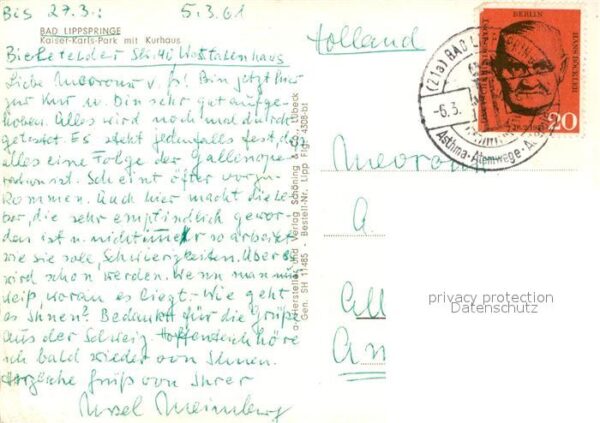 Bis 27.3.: 5.3.61
BAD LIPPSPRINGE
Kaiser-Karls-Park mit Kurhaus
Bielefelder Str. 40 Westfalenhaus
Liebe v. Fr! Bin jetzt hier
zur Kur u. bin sehr gut aufge-
hoben. Alles wird nochmal durch
getestet. Es steht jedenfalls fest, daß
alles eine Folge der Gallenope-
ration ist. Scheint öfter vorzu-
kommen. Auch hier macht die Le-
ber, die sehr empfindlich gewor-
den ist u. nicht immer so arbeitet
wie sie soll, Schwierigkeiten. Aber es
wird schon werden. Wenn man nur
weiß, woran es liegt. - Wie geht
es Ihnen? Bedankt für die Grüße
aus der Schweiz. Hoffentlich höre
ich bald wieder von Ihnen.
Herzliche Grüße von Ihrer
Ursel Meinberg
a.-Hersteller und Verlag Schöning & Co., Lübeck
Gen. SH 11485 - Bestell-Nr. Lipp Flg 4308-bt
Holland
(21a) BAD
-6.3.
Asthma-Atemwege-
BERLIN
HANS BÖCKLER
20
A
All
Am
privacy protection
Datenschutz